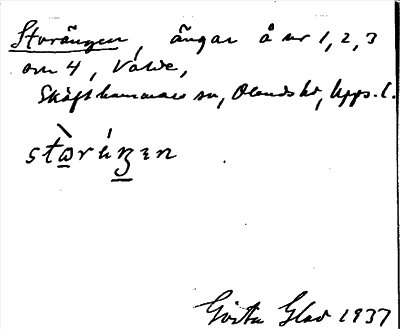 Storängen, ängar å nr 1, 2, 3
om 4, Valde,
Skäfthammars sn, Olands hd, Upps. l.
stòrźŋɛn
Gösta Glad 1937